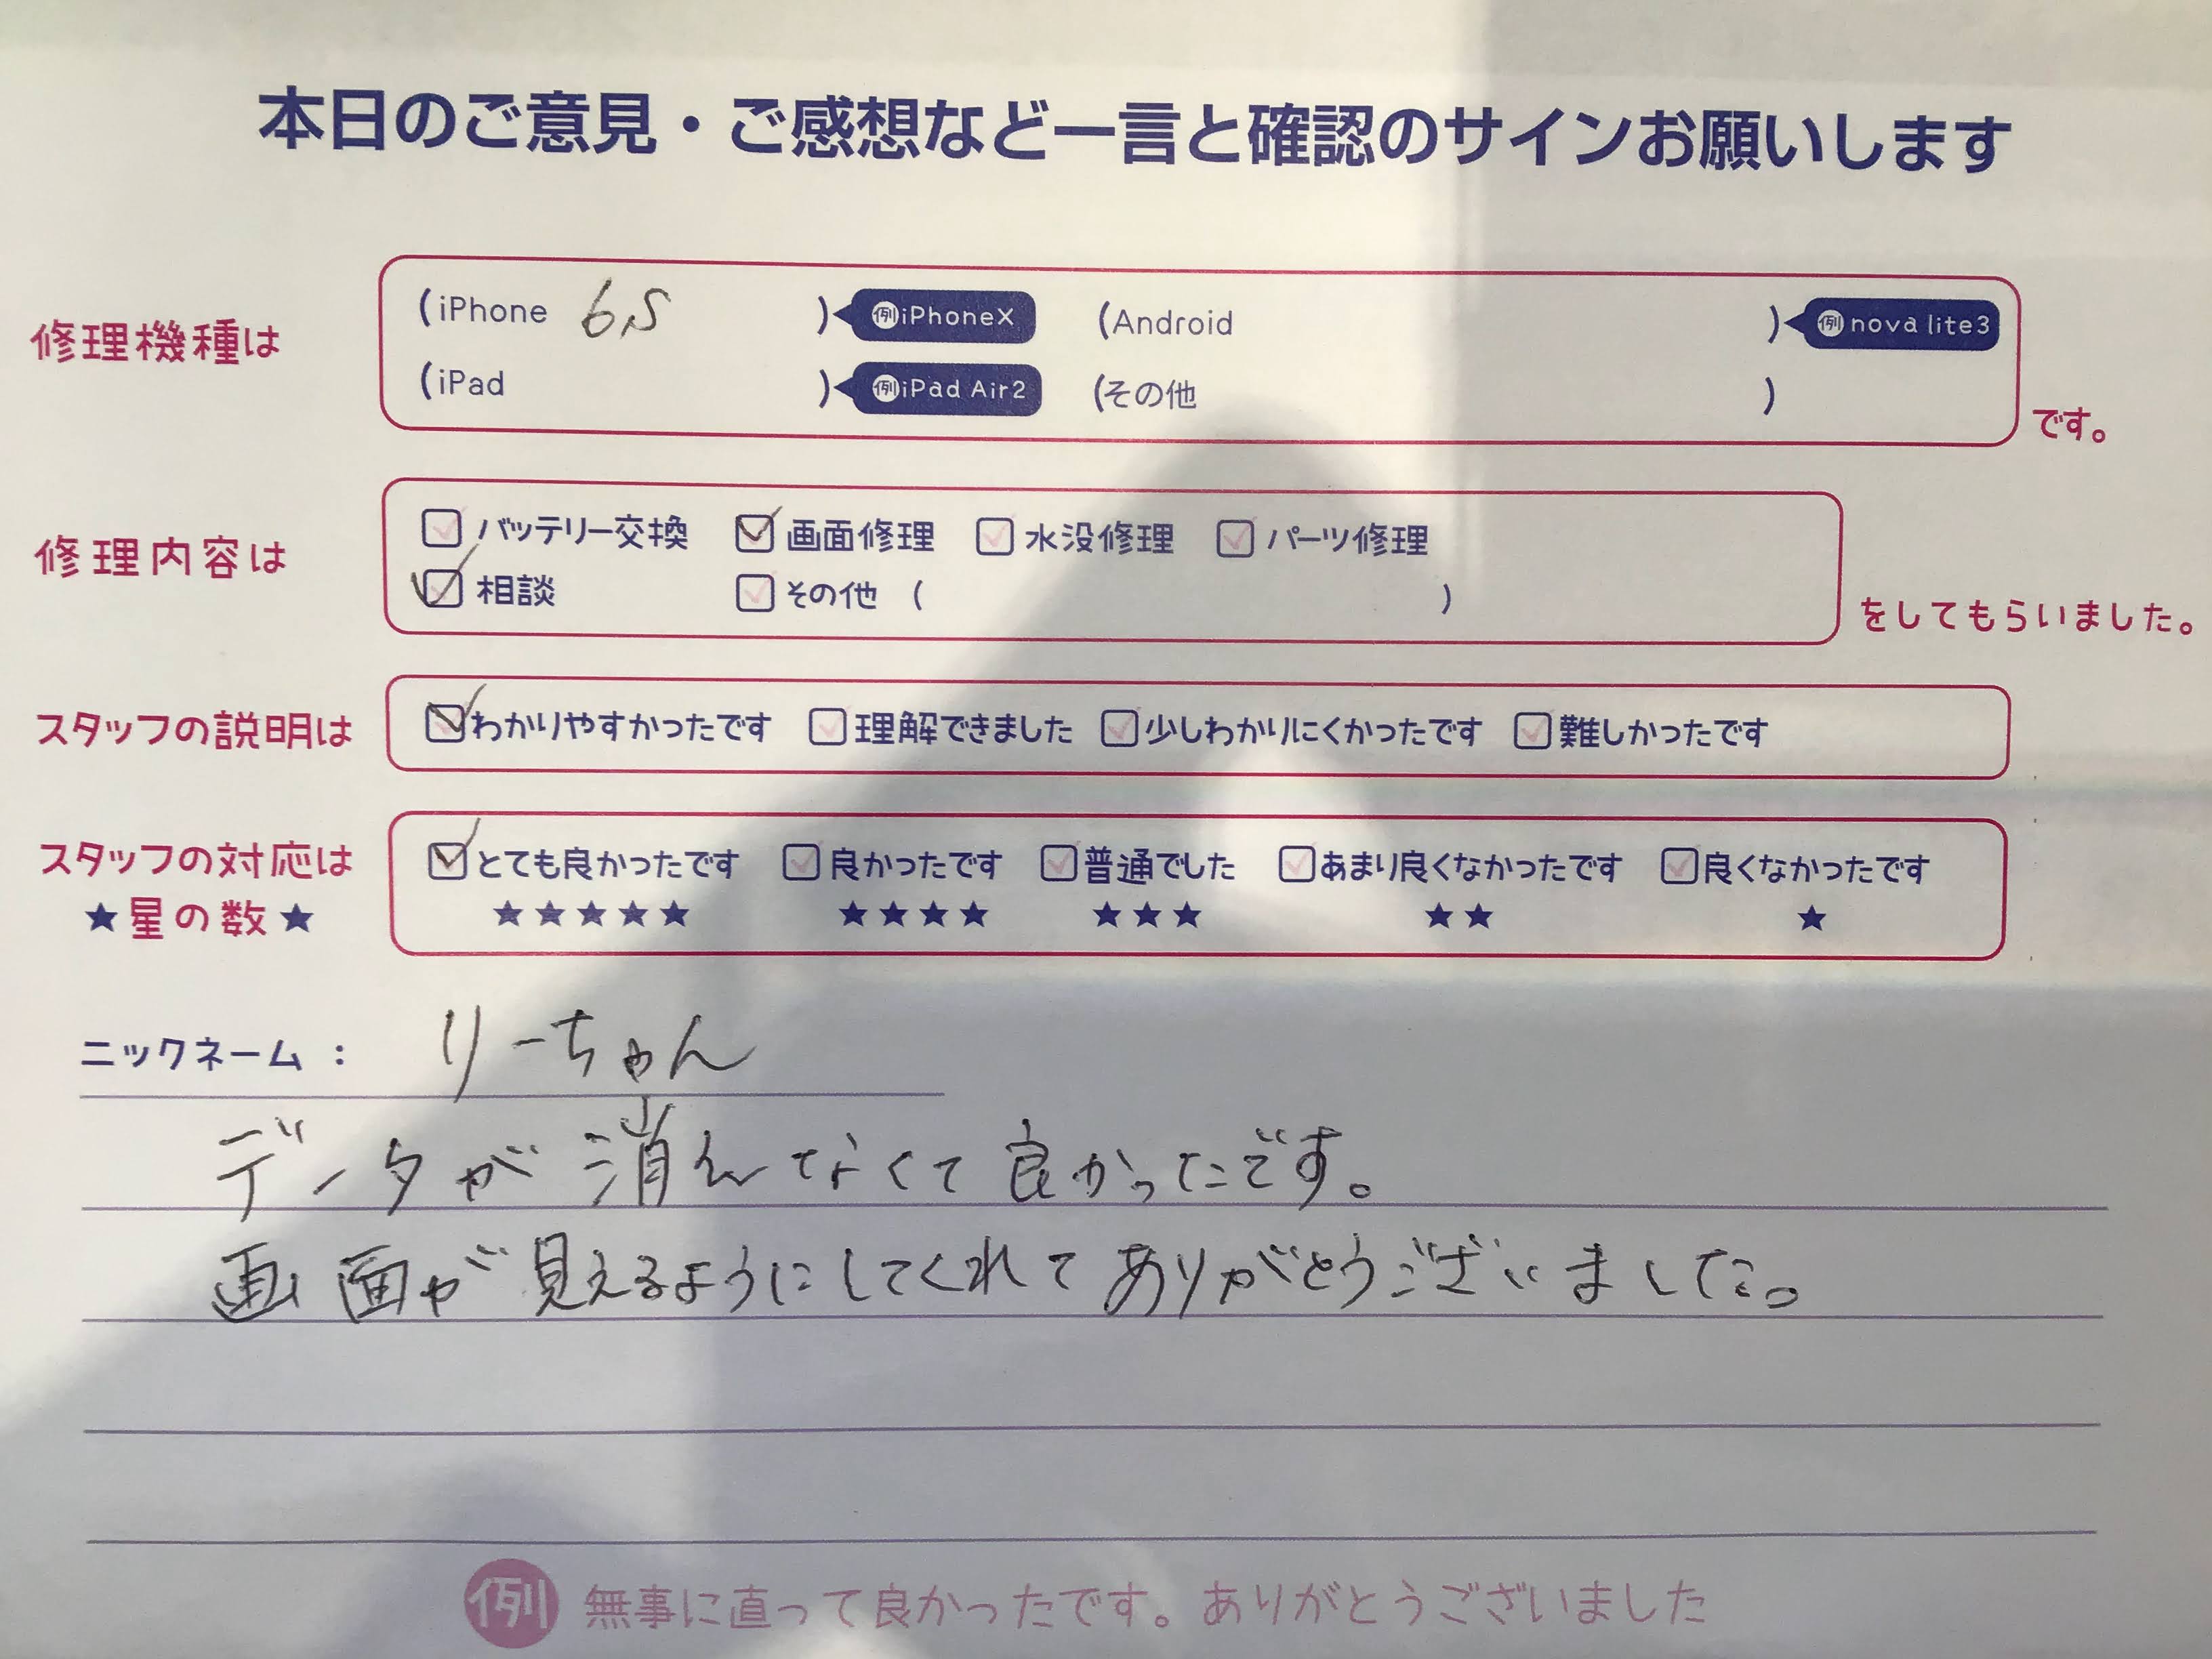 本日のご意見・ご感想など一言と確認のサインお願いします
修理機種は
(iPhone 6s ) 例iPhoneX (Android ) 例 nova lite3
(iPad ) 例iPad Air2 (その他 )
です。
修理内容は
バッテリー交換 画面修理 水没修理 パーツ修理
相談 その他 ( )
をしてもらいました。
スタッフの説明は
わかりやすかったです 理解できました 少しわかりにくかったです 難しかったです
スタッフの対応は
★星の数★
とても良かったです 良かったです 普通でした あまり良くなかったです 良くなかったです
★★★★★ ★★★★ ★★★ ★★ ★
ニックネーム： りーちゃん
データが消えなくて良かったです。
画面が見えるようにしてくれてありがとうございました。
例 無事に直って良かったです。ありがとうございました